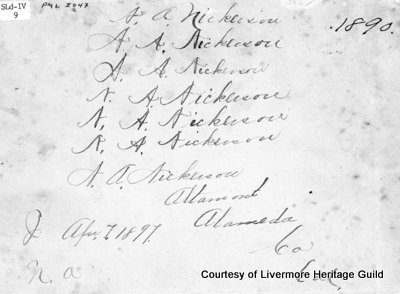 SLd-IV
9
P4L 2047
N. A. Nickerson
.1890.
N. A. Nickerson
N. A. Nickerson
N. A. Nickerson
N. A. Nickerson
N. A. Nickerson
N. A. Nickerson
Altamont
Alameda
J Apr. 7, 1897
Co
N. a
Cal
Courtesy of Livermore Heritage Guild